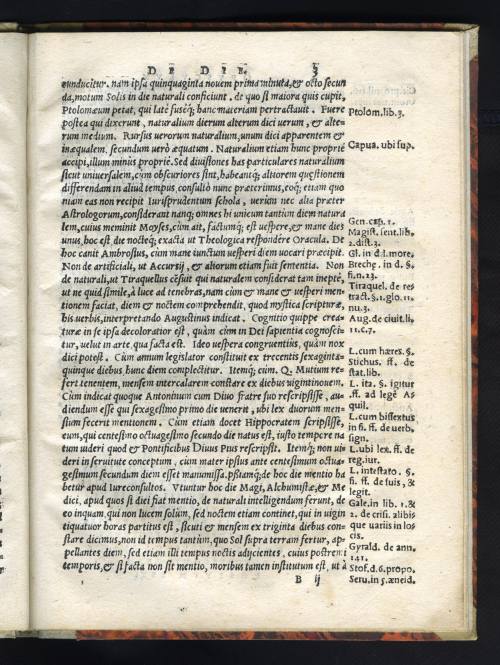 DE DIE. 3
conducitur. nam ipsa quinquaginta novem prima minuta, & octo secun
da, motum Solis in die naturali conficiunt. de quo si maiora quis cupit,
Ptolomæum petat, qui latè fusèq; hanc materiam pertractauit. Fuere
postea qui dixerunt, naturalium dierum alterum dici uerum, & alte-
rum medium. Rursus uerorum naturalium, unum dici apparentem &
inæqualem. secundum uerò æquatum. Naturalium etiam hunc propriè
accipi, illum minùs propriè. Sed diuisiones has particulares naturalium
sicut uniuersalem, cùm obscuriores sint, habeantq; altiorem quæstionem
differendam in aliud tempus, consultò nunc præterimus, eoq; etiam quo
niam eas non recipit Iurisprudentum schola, uerùm nec alia præter
Astrologorum, considerant nanq; omnes hi unicum tantùm diem natura
lem, cuius meminit Moyses, cùm ait, factumq; est uespere, & mane dies
unus. hoc est die nocteq; exacta ut Theologica respondêre Oracula. De
hoc canit Ambrosius, cùm mane iunctum uesperi diem uocari præcepit.
Non de artificiali, ut Accursij, & aliorum etiam fuit sententia. Non
de naturali, ut Tiraquellus cẽsuit qui naturalem considerat tam ineptè,
ut ne quid simile, à luce ad tenebras, nam cùm & mane & uesperi men-
tionem faciat, diem & noctem comprehendit, quod mystica scripturæ,
his uerbis, interpretando Augustinus indicat. Cognitio quippe crea-
turæ in se ipsa decoloratior est, quàm cùm in Dei sapientia cognosci-
tur, uelut in arte, qua facta est. Ideo uespera congruentius, quàm nox
dici potest. Cùm annum legislator constituit ex trecentis sexaginta-
quinque diebus, hunc diem complectitur. Itemq; cùm. Q. Mutium re-
fert tenentem, mensem intercalarem constare ex diebus uigintinouem.
Cùm indicat quoque Antoninum cum Diuo fratre suo rescripsisse, au-
diendum esse qui sexagesimo primo die uenerit, ubi lex duorum men-
sium fecerit mentionem. Cùm etiam docet Hippocratem scripsisse,
eum, qui centesimo octuagesimo secundo die natus est, iusto tempore na
tum uideri quod & Pontificibus Diuus Pius rescripsit. Itemq; non ui-
deri in seruitute conceptum, cùm mater ipsius ante centesimum octua-
gesimum secundum diem esset manumissa. pstatq; de hoc die mentio ha
betur apud Iureconsultos. Vtuntur hoc die Magi, Alchumistæ, & Me
dici, apud quos si diei fiat mentio, de naturali intelligendum ferunt, de
eo inquam, qui non lucem solùm, sed noctem etiam continet, qui in uigin
tiquatuor horas partitus est, sicuti & mensem ex triginta diebus con-
stare dicimus, non id tempus tantùm, quo Sol supra terram fertur, ap-
pellantes diem, sed etiam illi tempus noctis adijcientes, cuius postremi
temporis, & si facta non sit mentio, moribus tamen institutum est, ut à
B ij
Ptolom. lib. 3.
Capua. ubi sup.
Gen. cap. 1.
Magist. sent. lib.
2. dist. 3.
Gl. in d. l. more.
Breche. in d. §.
fi. n. 13.
Tiraquel. de re
tract. §. 1. glo. 11.
nu. 3.
Aug. de ciuit. li.
11. c. 7.
L. cum hæres. §.
Stichus. ff. de
stat. lib.
L. ita. §. igitur
.ff. ad legẽ A
quil.
L. cum bissextus
in fi. ff. de uerb.
sign.
L. ubi lex. ff. de
reg. iur.
L. intestato. §.
fi. ff. de suis, &
legit.
Gale. in lib. 1. &
2. de crisi. alibis
que uariis in los
cis.
Gyrald. de ann.
141.
Stof. d. 6. propo.
Seru. in 5. æneid.